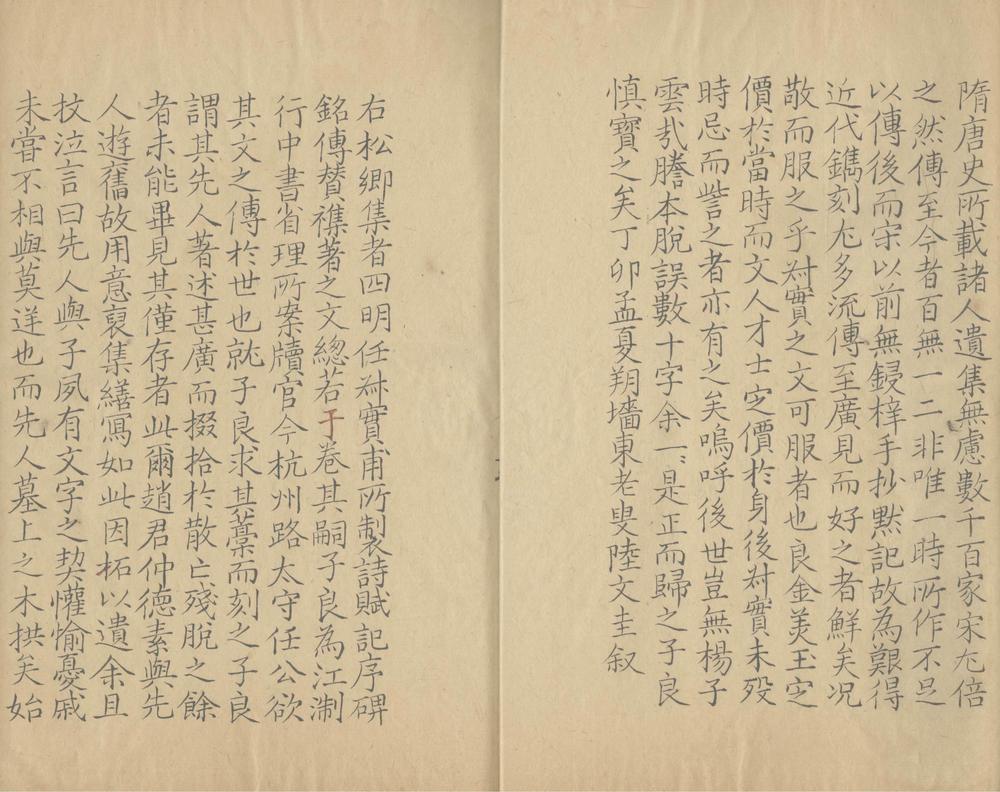 隋唐史所載諸人遺集無慮數千百家宋尤倍
之然傳至今者百無一二非唯一時所作不足
以傳後而宋以前無鋟梓手抄默記故為艱得
近代鐫刻尤多流傳至廣見而好之者鮮矣况
敬而服之乎尗實之文可服者也良金美玉定
價於當時而文人才士定價於身後尗實未歿
時忌而訾之者亦有之矣嗚呼後世豈無楊子
雲㢤謄本脫誤數十字余一〻是正而歸之子良
慎寶之矣丁卯孟夏朔墻東老叟陸文圭叙
右松鄉集者四明任尗實甫所製詩賦記序碑
銘傳賛襍著之文總若干卷其嗣子良為江淛
行中書省理所案牘官今杭州路太守任公欲
其文之傳於世也就子良求其藁而刻之子良
謂其先人著述甚廣而掇拾於散亡殘脫之餘
者未能畢見其僅存者此爾趙君仲德素與先
人遊舊故用意裒集繕寫如此因柘以遺余且
扙泣言曰先人與子夙有文字之契懽愉憂戚
未嘗不相與莫逆也而先人墓上之木拱矣始